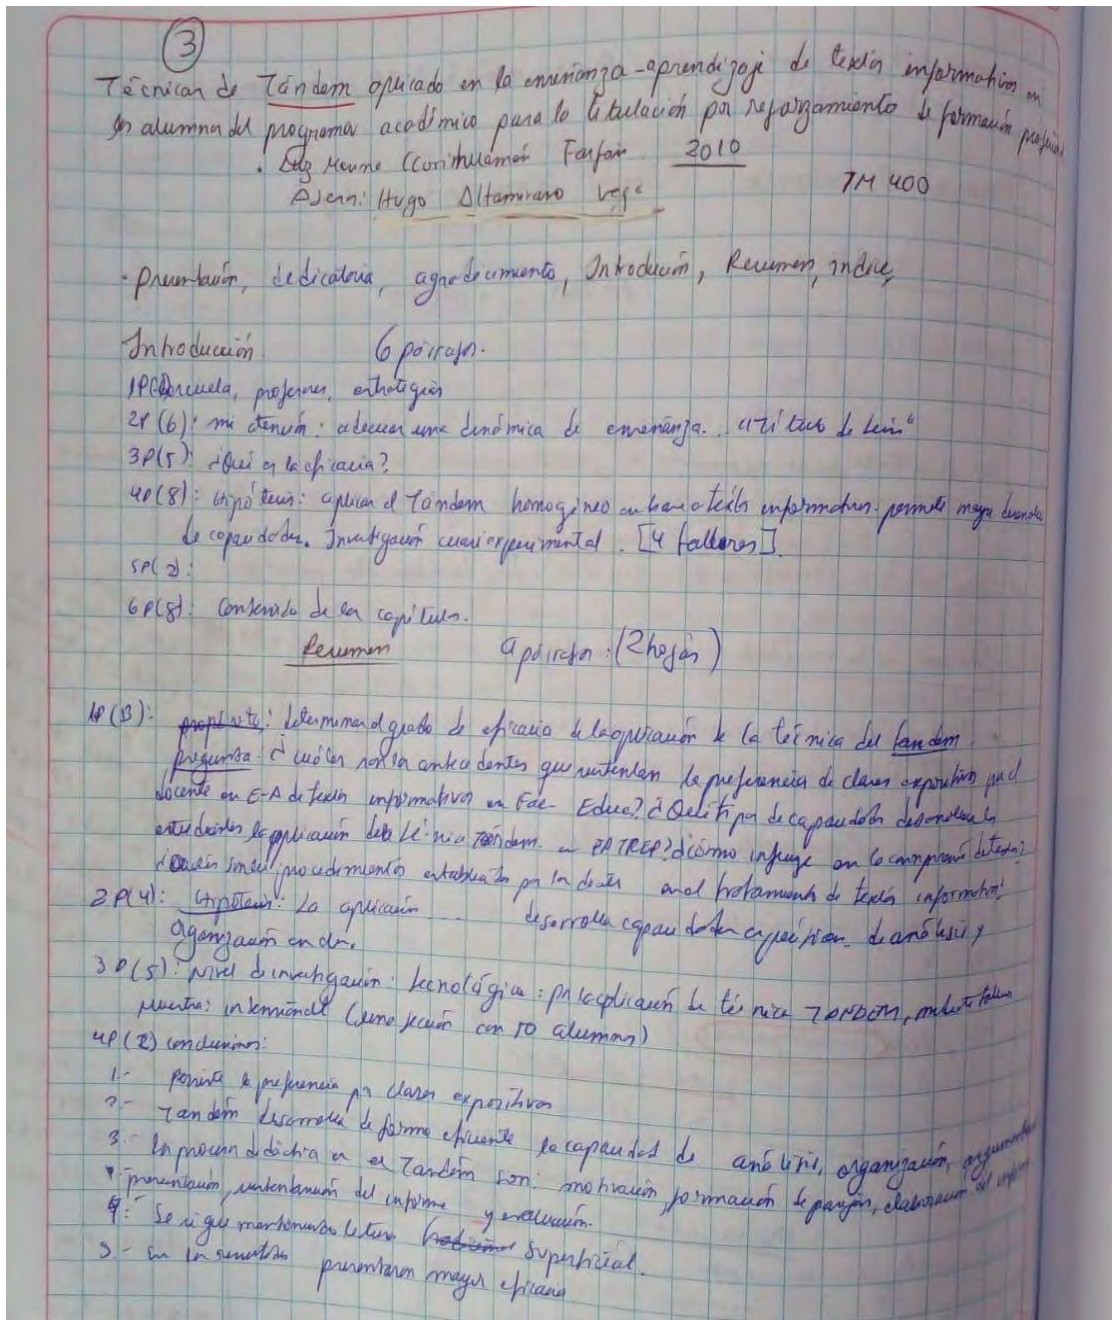 3
Técnicas de Tándem aplicado en la enseñanza-aprendizaje de textos informativos en
los alumnos del programa académico para la titulación por reforzamiento de formación
. Luz Ccorihuamán Farfán 2010
Asesor: Hugo Altamirano Vega TM 400
. Presentación, dedicatoria, agradecimiento, Introducción, Resumen, índice,
Introducción. 6 párrafos.
escuela, profesores, estrategias
2P (6): mi atención: adecuar una dinámica de enseñanza..
3P(5): ¿Qué es la eficacia?
4P(8): Hipótesis: aplicar el Tándem homogéneo textos informativos permite mayor
de capacidades. Investigación cuasiexperimental. [4 talleres].
5P(2):
6P(8): Contenido de los capítulos.
Resumen 4 párrafos: (2 hojas)
1P (13): propósito: determinar el grado de eficacia de la aplicación de la técnica del tandem.
pregunta: ¿cuáles son los antecedentes que sustentan la preferencia de clases expositivas por el
docente en E-A de textos informativos en Fac- Educ? ¿Qué tipo de capacidades desarrollan los
estudiantes la aplicación de la técnica Tándem. en PATREP? ¿cómo influye en la comprensión de textos?
¿Cuáles son los procedimientos establecidos por los docentes en el tratamiento de textos informativos?
2P(4): Hipótesis: La aplicación .... desarrolla capacidades específicas de análisis y
organización
3P(5): nivel de investigación: tecnológica: por la aplicación de técnica TANDEM,
muestra: intencional (una sección con 50 alumnos)
4P(2) conclusiones:
1.- Persiste la preferencia por clases expositivas
2.- Tandém desarrolla de forma eficiente la capacidad de análisis, organización,
3.- Los procesos en el Tandém son: motivación, formación de parejas, elaboración del informe
presentación, sustentación del informe y evaluación.
4: Se sigue manteniendo lectura superficial.
5.- presentaron mayor eficacia